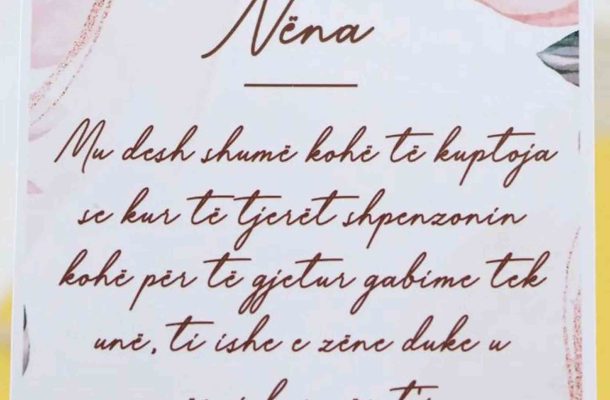 Nëna
Mu desh shumë kohë të kuptoja
se kur të tjerët shpenzonin
kohë për të gjetur gabime tek
unë, ti ishe e zëne duke u